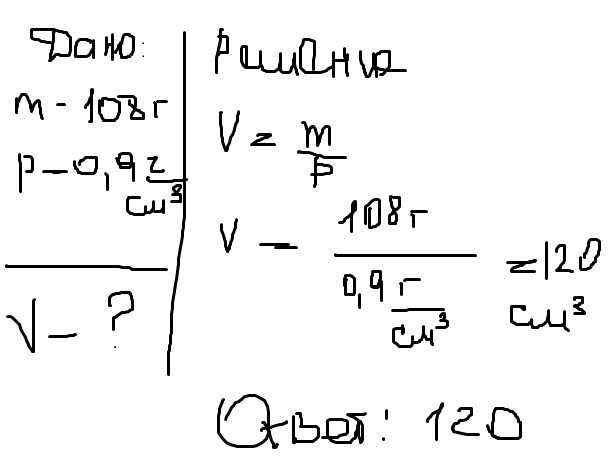 Дано:
m - 108г
p - 0,9 г/см³
V - ?
Решение
V = m/p
V - 108г / 0,9 г/см³ = 120 см³
Ответ: 120